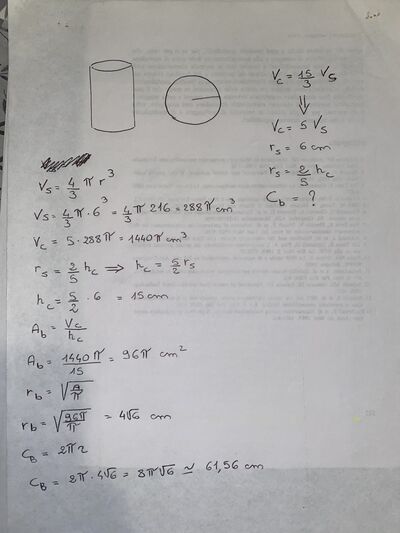 V_c = 15/3 V_s
⇓
V_c = 5 V_s
r_s = 6 cm
r_s = 2/5 h_c
C_b = ?
V_s = 4/3 π r³
V_s = 4/3 π · 6³ = 4/3 π 216 = 288π cm³
V_c = 5 · 288π = 1440π cm³
r_s = 2/5 h_c ⇒ h_c = 5/2 r_s
h_c = 5/2 · 6 = 15 cm
A_b = V_c/h_c
A_b = 1440π/15 = 96π cm²
r_b = √(A/π)
r_b = √(96π/π) = 4√6 cm
C_B = 2πr
C_B = 2π · 4√6 = 8π√6 ≃ 61,56 cm